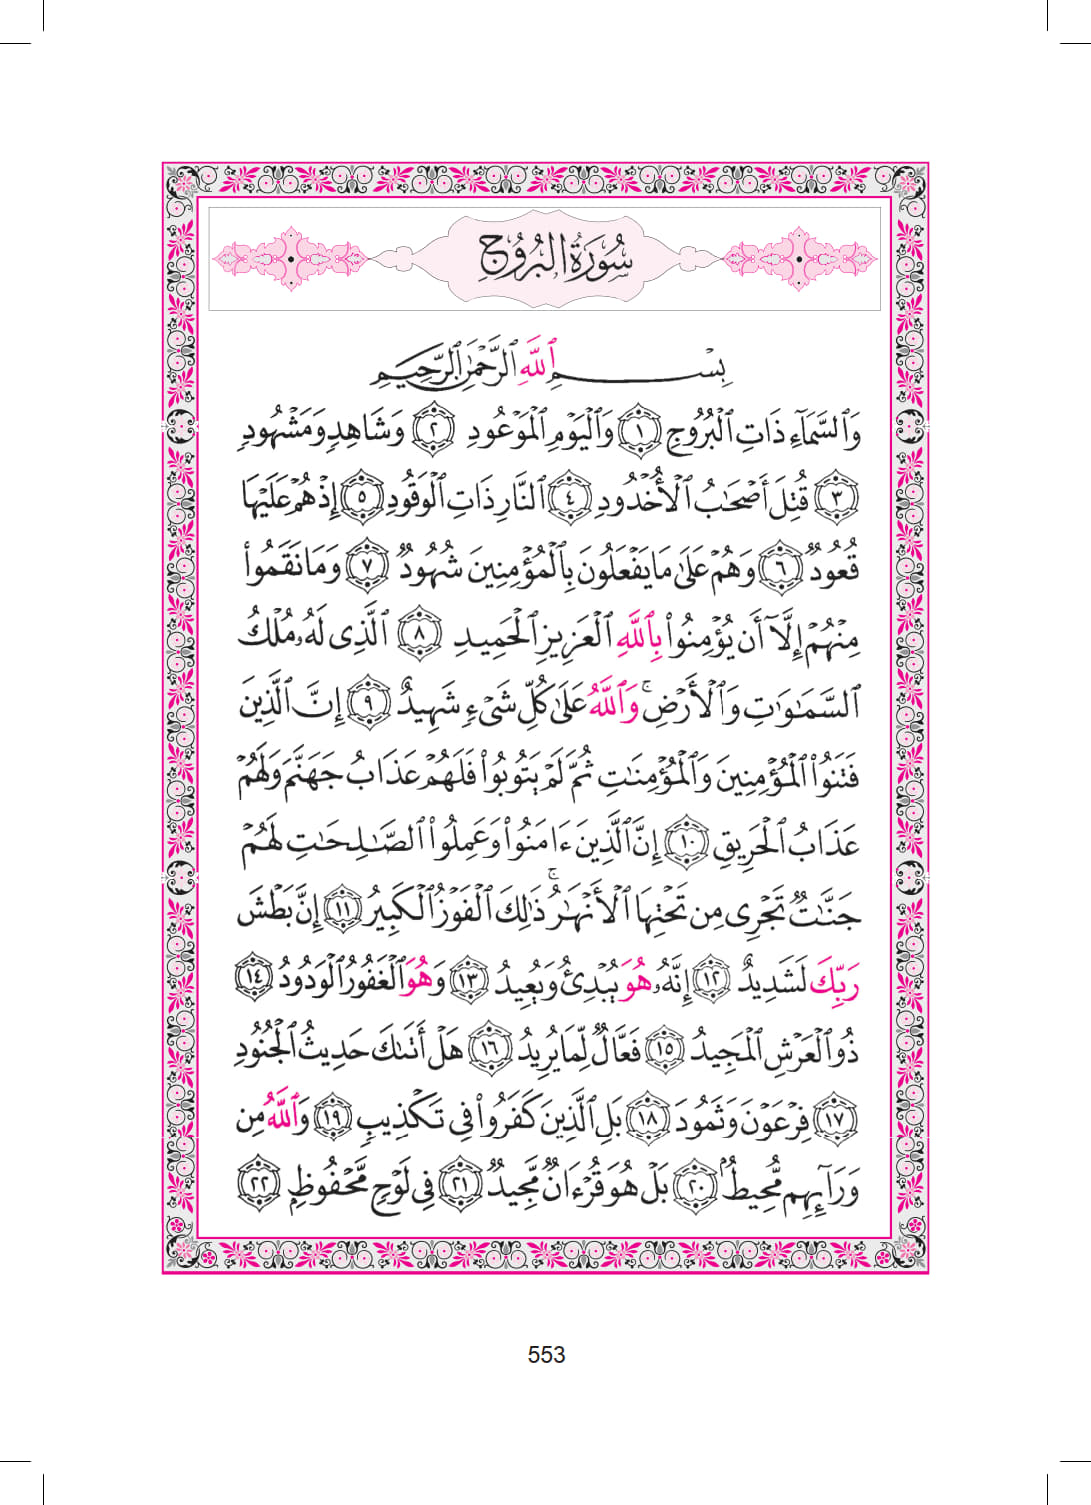 سُورَةُ الْبُرُوجِ
بِسْمِ ٱللَّهِ ٱلرَّحْمَٰنِ ٱلرَّحِيمِ
وَٱلسَّمَآءِ ذَاتِ ٱلْبُرُوجِ ١ وَٱلْيَوْمِ ٱلْمَوْعُودِ ٢ وَشَاهِدٍ وَمَشْهُودٍ
٣ قُتِلَ أَصْحَٰبُ ٱلْأُخْدُودِ ٤ ٱلنَّارِ ذَاتِ ٱلْوَقُودِ ٥ إِذْ هُمْ عَلَيْهَا
قُعُودٌ ٦ وَهُمْ عَلَىٰ مَا يَفْعَلُونَ بِٱلْمُؤْمِنِينَ شُهُودٌ ٧ وَمَا نَقَمُوا۟
مِنْهُمْ إِلَّآ أَن يُؤْمِنُوا۟ بِٱللَّهِ ٱلْعَزِيزِ ٱلْحَمِيدِ ٨ ٱلَّذِى لَهُۥ مُلْكُ
ٱلسَّمَٰوَٰتِ وَٱلْأَرْضِ ۚ وَٱللَّهُ عَلَىٰ كُلِّ شَىْءٍ شَهِيدٌ ٩ إِنَّ ٱلَّذِينَ
فَتَنُوا۟ ٱلْمُؤْمِنِينَ وَٱلْمُؤْمِنَٰتِ ثُمَّ لَمْ يَتُوبُوا۟ فَلَهُمْ عَذَابُ جَهَنَّمَ وَلَهُمْ
عَذَابُ ٱلْحَرِيقِ ١٠ إِنَّ ٱلَّذِينَ ءَامَنُوا۟ وَعَمِلُوا۟ ٱلصَّٰلِحَٰتِ لَهُمْ
جَنَّٰتٌ تَجْرِى مِن تَحْتِهَا ٱلْأَنْهَٰرُ ۚ ذَٰلِكَ ٱلْفَوْزُ ٱلْكَبِيرُ ١١ إِنَّ بَطْشَ
رَبِّكَ لَشَدِيدٌ ١٢ إِنَّهُۥ هُوَ يُبْدِئُ وَيُعِيدُ ١٣ وَهُوَ ٱلْغَفُورُ ٱلْوَدُودُ ١٤
ذُو ٱلْعَرْشِ ٱلْمَجِيدُ ١٥ فَعَّالٌ لِّمَا يُرِيدُ ١٦ هَلْ أَتَىٰكَ حَدِيثُ ٱلْجُنُودِ
١٧ فِرْعَوْنَ وَثَمُودَ ١٨ بَلِ ٱلَّذِينَ كَفَرُوا۟ فِى تَكْذِيبٍ ١٩ وَٱللَّهُ مِن
وَرَآئِهِم مُّحِيطٌۢ ٢٠ بَلْ هُوَ قُرْءَانٌ مَّجِيدٌ ٢١ فِى لَوْحٍ مَّحْفُوظٍۭ ٢٢
553